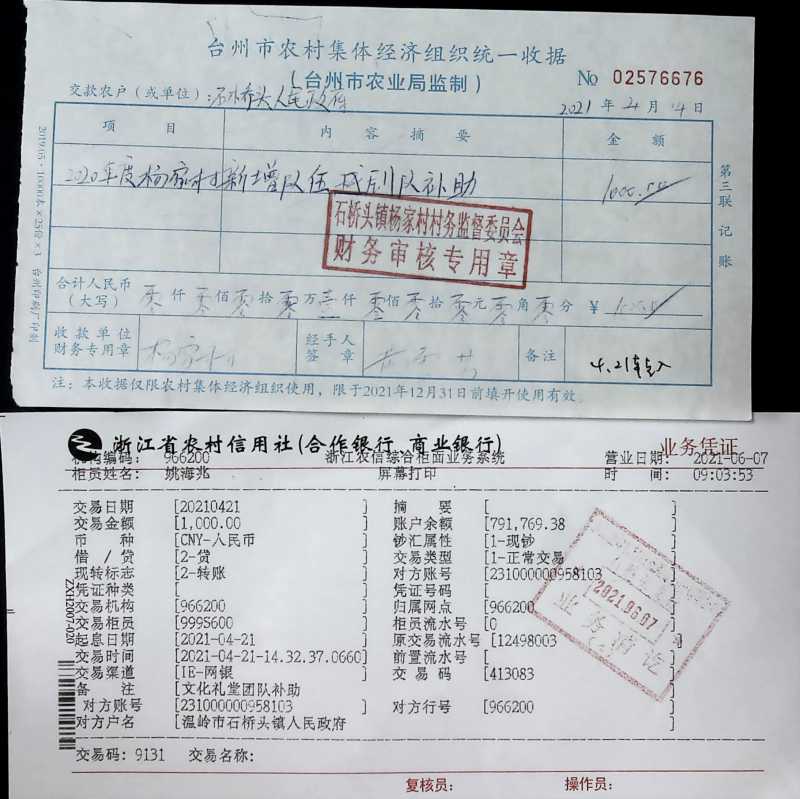 台州市农村集体经济组织统一收据
(台州市农业局监制)
No 02576676
交款农户（或单位）：石桥头人民政府
2021 年 4 月 14 日
项 目 内 容 摘 要 金 额
2020年度杨家村新增队伍 队补助 1000.00
石桥头镇杨家村村务监督委员会
财务审核专用章
合计人民币（大写） 零 仟 零 佰 零 拾 零 万 壹 仟 零 佰 零 拾 零 元 零 角 零 分 ￥
收款单位财务专用章 杨家村
经手人签章
备注 4.21转入
注：本收据仅限农村集体经济组织使用，限于2021年12月31日前填开使用有效。
第三联 记账
2019.05·10000本×25份×3 台州印刷厂印制
浙江省农村信用社(合作银行、商业银行) 业务凭证
机构编码: 966200 浙江农信综合柜面业务系统 营业日期: 2021-06-07
柜员姓名: 姚海兆 屏幕打印 时 间: 09:03:53
交易日期 [20210421 ] 摘 要 [ ]
交易金额 [1,000.00 ] 账户余额 [791,769.38 ]
币 种 [CNY-人民币 ] 钞汇属性 [1-现钞 ]
借 / 贷 [2-贷 ] 交易类型 [1-正常交易 ]
现转标志 [2-转账 ] 对方账号 [231000000958103 ]
凭证种类 [ ] 凭证号码 [ ]
交易机构 [966200 ] 归属网点 [966200 ]
交易柜员 [999S600 ] 柜员流水号 [0 ]
起息日期 [2021-04-21 ] 原交易流水号 [12498003 ]
交易时间 [2021-04-21-14.32.37.0660] 前置流水号 [ ]
交易渠道 [IE-网银 ] 交 易 码 [413083 ]
备 注 [文化礼堂团队补助 ]
对方账号 [231000000958103 ] 对方行号 [966200 ]
对方户名 [温岭市石桥头镇人民政府 ]
交易码: 9131 交易名称:
复核员: 操作员:
2021.06.07
业务清讫
ZXH2007-020